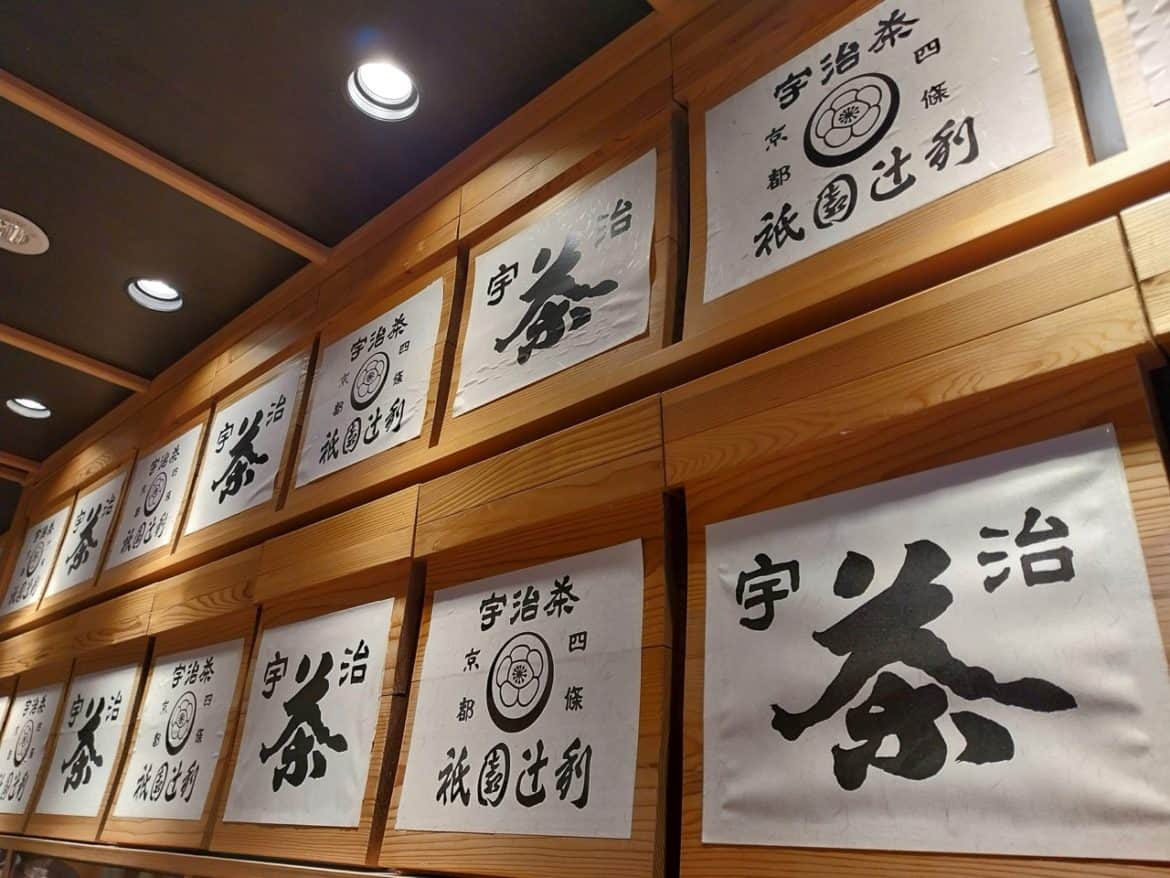 宇治茶
京都 四條
祇園辻利
宇治
茶
宇治茶
京都 四條
祇園辻利
宇治
茶
宇治茶
京都 四條
祇園辻利
宇治
茶
宇治茶
京都 四條
祇園辻利
宇治茶
祇園辻利
宇治
茶
宇治茶
京都 四條
祇園辻利
宇治
茶
宇治茶
京都 四條
祇園辻利
宇治
茶